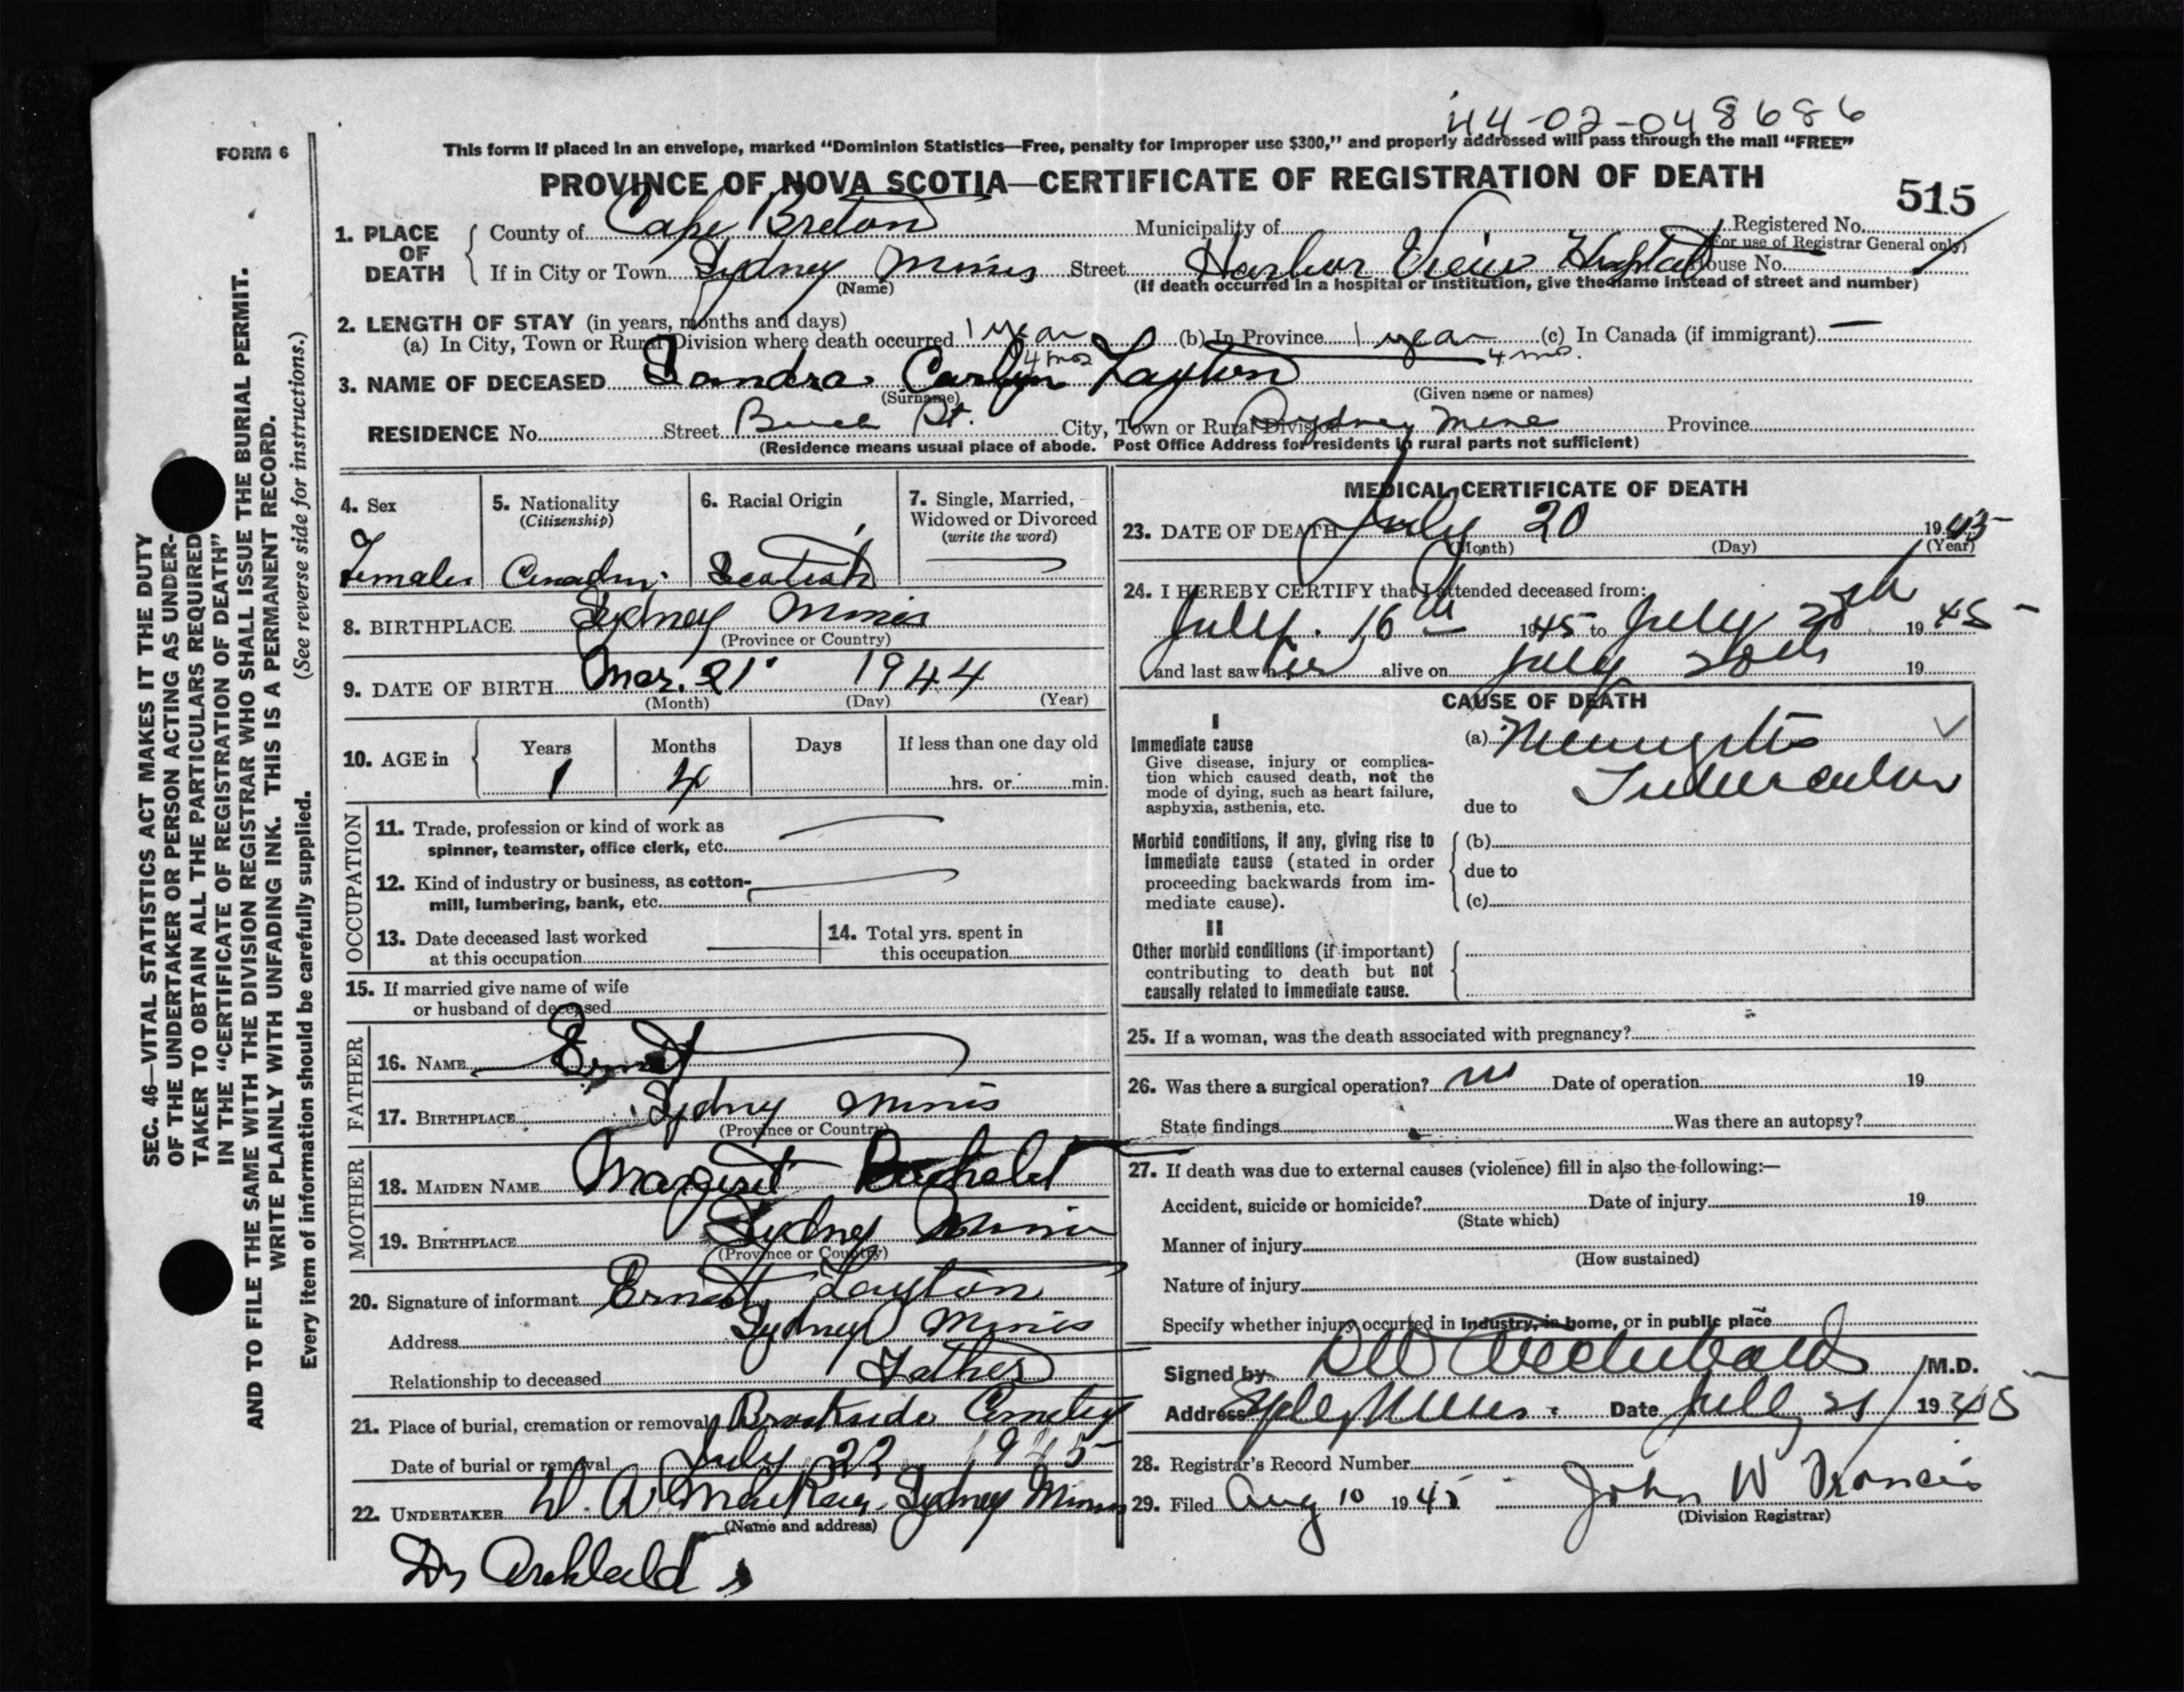 44-02-048686
FORM 6
This form if placed in an envelope, marked "Dominion Statistics—Free, penalty for improper use $300," and properly addressed will pass through the mail "FREE"
PROVINCE OF NOVA SCOTIA—CERTIFICATE OF REGISTRATION OF DEATH
515
1. PLACE OF DEATH
County of Cape Breton Municipality of Registered No.
(For use of Registrar General only)
If in City or Town Sydney Mines Street Harbor View Hospital House No.
(Name) (If death occurred in a hospital or institution, give the name instead of street and number)
2. LENGTH OF STAY (in years, months and days)
(a) In City, Town or Rural Division where death occurred 1 year 4 mos (b) In Province 1 year 4 mo. (c) In Canada (if immigrant) —
3. NAME OF DECEASED Sandra Carlyn Layton
(Surname) (Given name or names)
RESIDENCE No. Street St. City, Town or Rural Division Sydney Mine Province
(Residence means usual place of abode. Post Office Address for residents in rural parts not sufficient)
4. Sex
Female
5. Nationality
(Citizenship)
6. Racial Origin
Scotish
7. Single, Married,
Widowed or Divorced
(write the word)
8. BIRTHPLACE Sydney Mines
(Province or Country)
9. DATE OF BIRTH Mar. 21 1944
(Month) (Day) (Year)
10. AGE in
Years Months Days If less than one day old
1 4 hrs. or min.
OCCUPATION
11. Trade, profession or kind of work as
spinner, teamster, office clerk, etc.
12. Kind of industry or business, as cotton-
mill, lumbering, bank, etc.
13. Date deceased last worked
at this occupation
14. Total yrs. spent in
this occupation
15. If married give name of wife
or husband of deceased
FATHER
16. NAME Ernest
17. BIRTHPLACE Sydney Mines
(Province or Country)
MOTHER
18. MAIDEN NAME Margaret
19. BIRTHPLACE Sydney Mines
(Province or Country)
20. Signature of informant Ernest Layton
Address Sydney Mines
Relationship to deceased Father
21. Place of burial, cremation or removal Brookside Cemetery
Date of burial or removal July 22 1945
22. UNDERTAKER W. A. MacKay, Sydney Mines
(Name and address)
Dr Archibald
MEDICAL CERTIFICATE OF DEATH
23. DATE OF DEATH July 20 1945
(Month) (Day) (Year)
24. I HEREBY CERTIFY that I attended deceased from:
July 16th 1945 to July 20th 1945
and last saw her alive on July 20th 19
CAUSE OF DEATH
I
Immediate cause
Give disease, injury or complica-
tion which caused death, not the
mode of dying, such as heart failure,
asphyxia, asthenia, etc.
(a) Meningitis
Tubercular
due to
Morbid conditions, if any, giving rise to
immediate cause (stated in order
proceeding backwards from im-
mediate cause).
(b)
due to
(c)
II
Other morbid conditions (if important)
contributing to death but not
causally related to immediate cause.
25. If a woman, was the death associated with pregnancy?
26. Was there a surgical operation? no Date of operation 19
State findings Was there an autopsy?
27. If death was due to external causes (violence) fill in also the following:—
Accident, suicide or homicide? Date of injury 19
(State which)
Manner of injury
(How sustained)
Nature of injury
Specify whether injury occurred in industry, in home, or in public place
Signed by Archibald M.D.
Address Sydney Mines Date July 21 1945
28. Registrar's Record Number
29. Filed Aug 10 1945 John W Francis
(Division Registrar)
SEC. 46—VITAL STATISTICS ACT MAKES IT THE DUTY
OF THE UNDERTAKER OR PERSON ACTING AS UNDER-
TAKER TO OBTAIN ALL THE PARTICULARS REQUIRED
IN THE "CERTIFICATE OF REGISTRATION OF DEATH"
AND TO FILE THE SAME WITH THE DIVISION REGISTRAR WHO SHALL ISSUE THE BURIAL PERMIT.
WRITE PLAINLY WITH UNFADING INK. THIS IS A PERMANENT RECORD.
Every item of information should be carefully supplied. (See reverse side for instructions.)